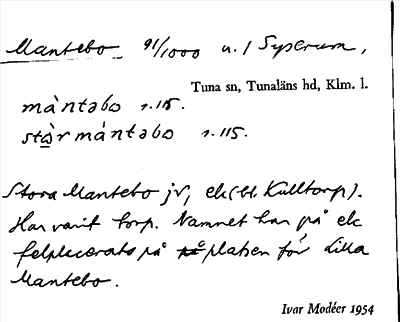 Mantebo 91/1000 u. / Syserum,
Tuna sn, Tunaläns hd, Klm. l.
màntəbo 1.115.
stò̲r mántəbo 1.115.
Stora Mantebo jr, ek (bl. Kulltorp).
Har varit torp. Namnet har på ek
felplacerats på platsen för Lilla
Mantebo.
Ivar Modéer 1954